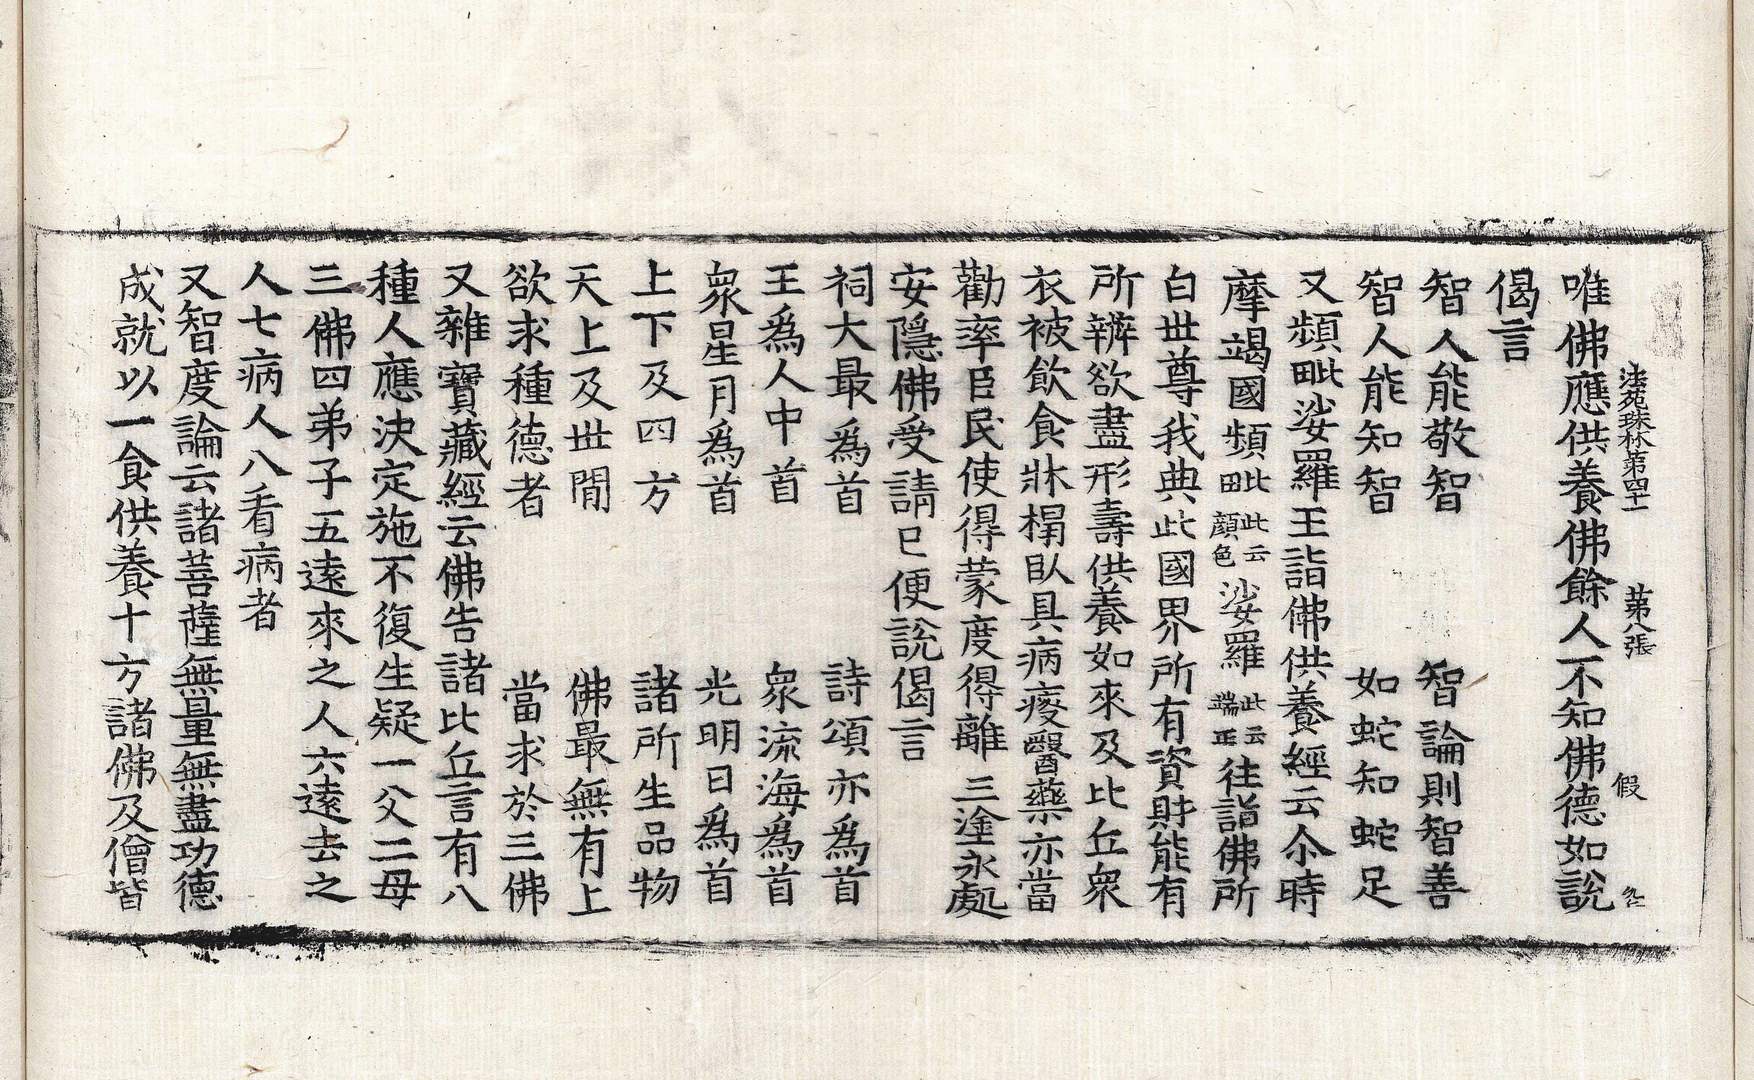 法苑珠林第四十一 第八張 假
唯佛應供養佛餘人不知佛德如說
偈言
智人能敬智 智論則智善
智人能知智 如蛇知蛇足
又頻毗娑羅王詣佛供養經云尒時
摩竭國頻毗此云顏色娑羅此云端正往詣佛所
白世尊我典此國界所有資財能有
所辨欲盡形壽供養如來及比丘衆
衣被飲食牀榻臥具病瘦醫藥亦當
勸率臣民使得蒙度得離三塗永處
安隱佛受請已便說偈言
祠大最爲首 詩頌亦爲首
王爲人中首 衆流海爲首
衆星月爲首 光明日爲首
上下及四方 諸所生品物
天上及世間 佛最無有上
欲求種德者 當求於三佛
又雜寶藏經云佛告諸比丘言有八
種人應決定施不復生疑一父二母
三佛四弟子五遠來之人六遠去之
人七病人八看病者
又智度論云諸菩薩無量無盡功德
成就以一食供養十方諸佛及僧皆